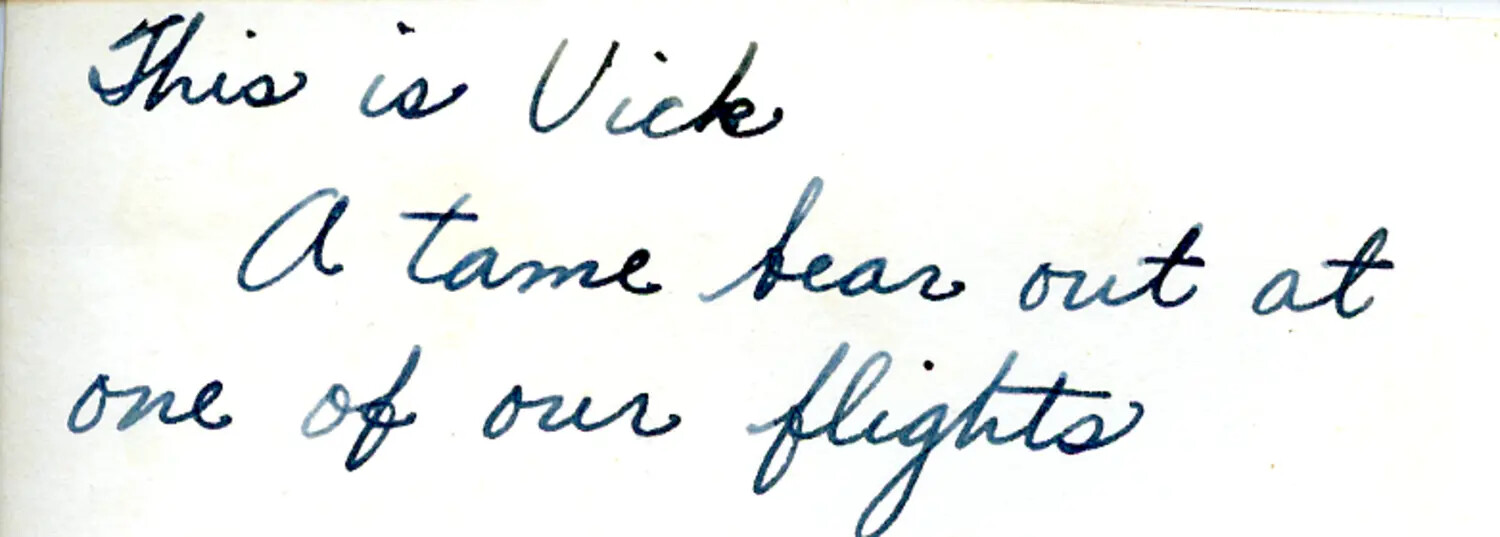 This is Vick
A tame bear out at
one of our flights